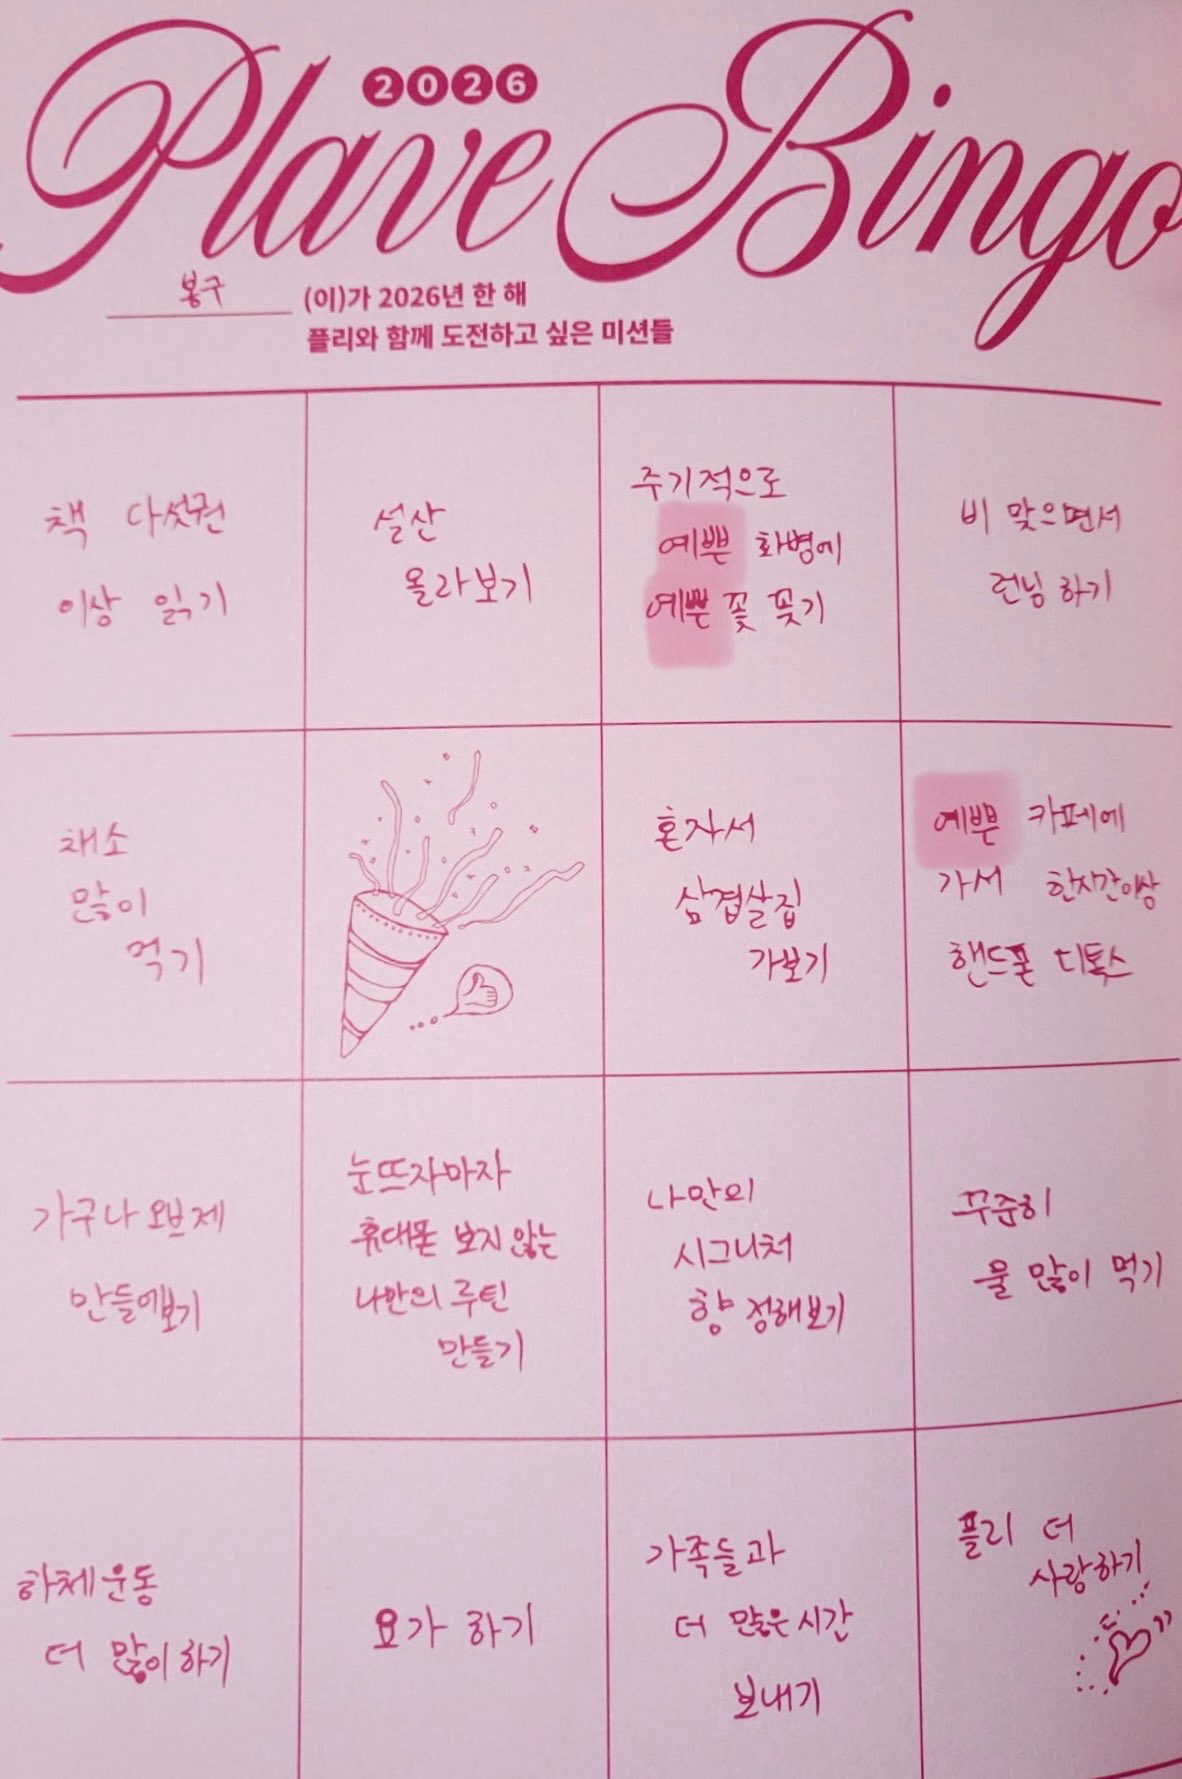 2026
Plave Bingo
봉구 (이)가 2026년 한 해
플리와 함께 도전하고 싶은 미션들
책 다섯권
이상 읽기
설산
올라보기
주기적으로
예쁜 화병에
예쁜 꽃 꽂기
비 맞으면서
런닝 하기
채소
많이
먹기
혼자서
삼겹살집
가보기
예쁜 카페에
가서 한시간이상
핸드폰 디톡스
가구나 오브제
만들어보기
눈뜨자마자
휴대폰 보지 않는
나만의 루틴
만들기
나만의
시그니처
향 정해보기
꾸준히
물 많이 먹기
하체운동
더 많이 하기
요가 하기
가족들과
더 많은 시간
보내기
플리 더
사랑하기